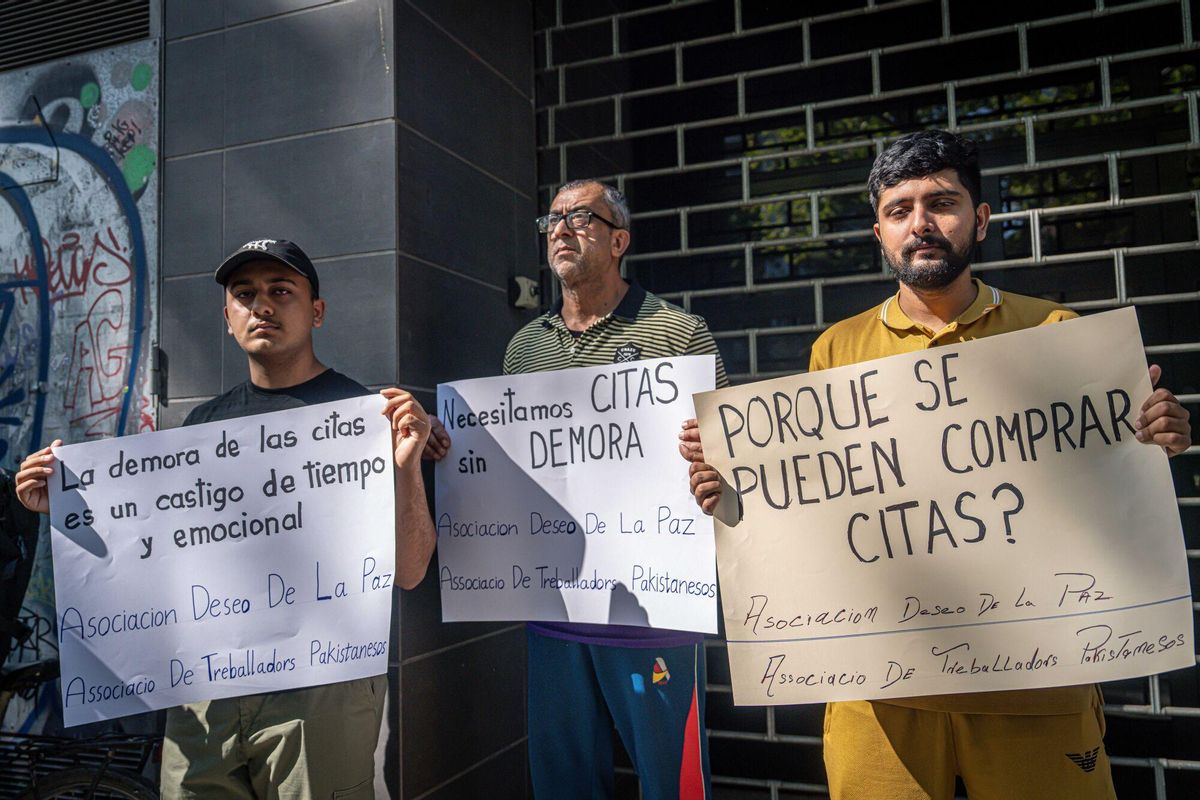 La demora de las citas
es un castigo de tiempo
y emocional
Asociacion Deseo De La Paz
Associacio De Treballadors Pakistanesos
Necesitamos CITAS
sin DEMORA
Asociacion Deseo De La Paz
Associacio De Treballadors Pakistanesos
PORQUE SE
PUEDEN COMPRAR
CITAS?
Asociacion Deseo De La Paz
Associacio De Treballadors Pakistanesos